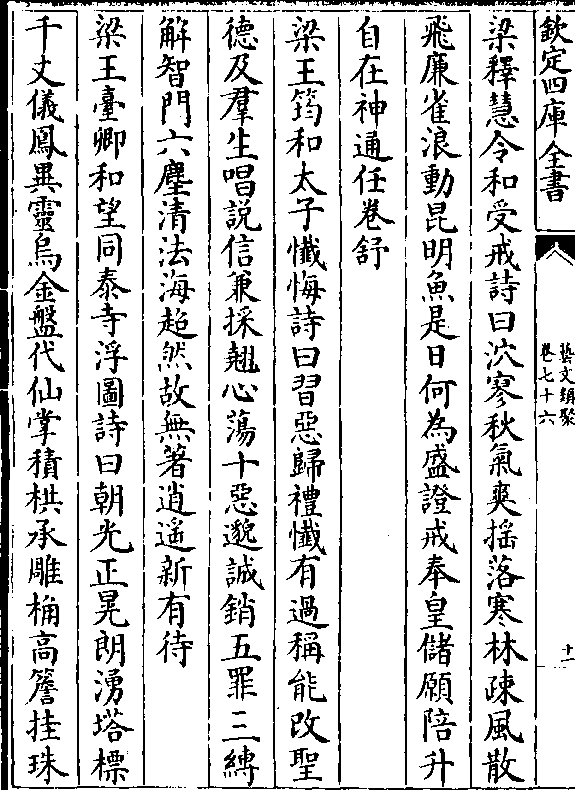 欽定四庫全書
藝文類聚
卷七十六
十一
梁釋慧令和受戒詩曰泬寥秋氣爽揺落寒林疎風散
飛廉雀浪動昆明魚是日何為盛證戒奉皇儲願陪升
自在神通任卷舒
梁王筠和太子懺悔詩曰習惡歸禮懺有過稱能改聖
德及羣生唱説信兼採翹心蕩十惡邈誠銷五罪三縛
解智門六塵清法海超然故無著逍遥新有待
梁王臺卿和望同泰寺浮圖詩曰朝光正晃朗湧塔標
千丈儀鳳異靈烏金盤代仙掌積栱承雕桷高簷挂珠